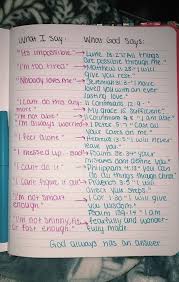 What I say: What God says:
"It's impossible." → Luke 18:27 "All things
are possible through me."
"I'm too tired" → Matthew 11:28 - I will
give you rest."
"Nobody loves me" → Jeremiah 31:3 - I have
loved you with an ever
lasting love."
"I can't do this any more → 2 Corinthians 12:9 -
My grace is sufficient"
"I'm not able" → 2 Corinthians 9:8 "I am able"
"I'm always worried → 1 Peter 5:7 - cast all
your cares on me"
"I feel alone" → Hebrews 13:5 - I will
never leave you."
"I messed up bad" → Psalm
mistakes don't define you."
"I can't do it" → Philippians 4:13 - you can
do all things through Christ"
"I can't figure it out" → Proverbs 3:5 - I will
direct your steps."
"I'm not smart enough" → 1 Cor 1:30 "I will give
you wisdom"
"I'm not skinny, fit, or fast enough" → Psalm 139:14 - I am
fearfully and wonder-
fully made."
God always has an answer